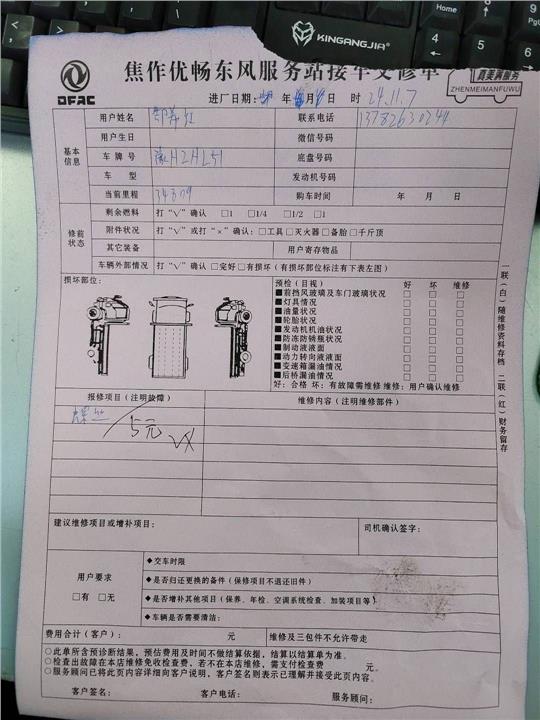 KINGANGJIA
Home
PgU
DFAC
焦作优畅东风服务站接车交修单
真美满服务
ZHENMEIMANFUWU
进厂日期: 年 月 日 时 24.11.7
基本信息
用户姓名
联系电话 13782630244
用户生日 微信号码
车牌号 豫H2HL51 底盘号码
车 型 发动机号码
当前里程 34309 购车时间 年 月 日
修前状态
剩余燃料 打“√”确认 □1 □1/4 □1/2 □1
附件状况 打“√”或打“×”确认:□工具□灭火器□备胎□千斤顶
其它装备 用户寄存物品
车辆外部情况 打“√”确认□完好□有损坏(有损坏部位标注有下表左图)
损坏部位:
预检(目视) 好 坏 维修
■前挡风玻璃及车门玻璃状况 □ □ □
■灯具情况 □ □ □
■油量状况 □ □ □
■轮胎状况 □ □ □
■发动机机油状况 □ □ □
■防冻防锈瓶状况 □ □ □
■制动液液面 □ □ □
■动力转向液液面 □ □ □
■变速箱漏油情况 □ □ □
■后桥漏油情况 □ □ □
好:合格 坏:有故障需维修 维修:用户确认维修
报修项目(注明故障) 维修内容(注明维修部件)
螺丝 15元 VX
建议维修项目或增补项目: 司机确认签字:
用户要求
□有 □无
◆交车时限
◆是否归还更换的备件(保修项目不退还旧件)
◆是否增补其他项目(保养、年检、空调系统检查、加装项目等)
◆车辆是否需要清洁:
费用合计(客户): 元 维修及三包件不允许带走
○此单所含预诊断结果,预估费用及时间不做结算依据,结算以结算单为准。
○检查出故障在本店维修免收检查费,若不在本店维修,需支付检查费 元。
○服务顾问已将此页内容详细向客户说明,客户签名则表示已理解并接受此页内容。
客户签名: 客户电话: 服务顾问:
一联(白)随维修资料存档 二联(红)财务留存